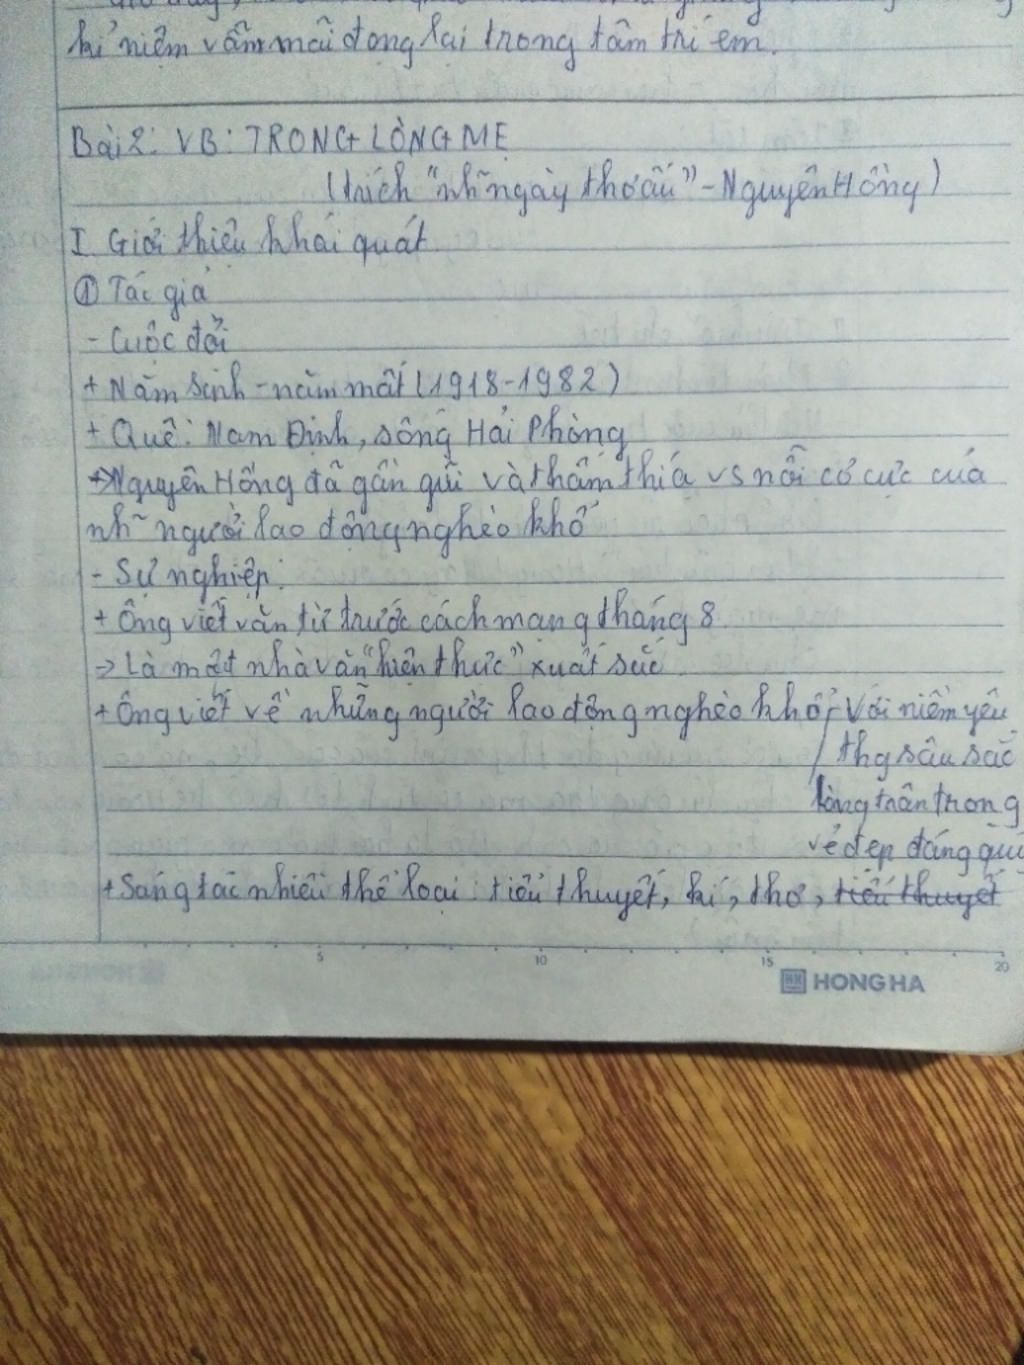 kỉ niệm vẫn mãi đọng lại trong tâm trí em.
Bài 2: VB: TRONG LÒNG MẸ
(trích "nh~ ngày thơ ấu" - Nguyên Hồng)
I Giới thiệu khái quát
① Tác giả
- Cuộc đời
+ Năm sinh - năm mất (1918-1982)
+ Quê: Nam Định, sống Hải Phòng
→ Nguyên Hồng đã gần gũi và thấm thía vs nỗi cơ cực của
nh~ người lao động nghèo khổ
- Sự nghiệp:
+ Ông viết văn từ trước cách mạng tháng 8
=> Là một nhà văn "hiện thực" xuất sắc
+ Ông viết về những người lao động nghèo khổ, với niềm yêu
thg sâu sắc
lòng trân trọng
vẻ đẹp đáng quý
+ Sáng tác nhiều thể loại: tiểu thuyết, kí, thơ, tiểu thuyết
5 10 15 20
HONG HA